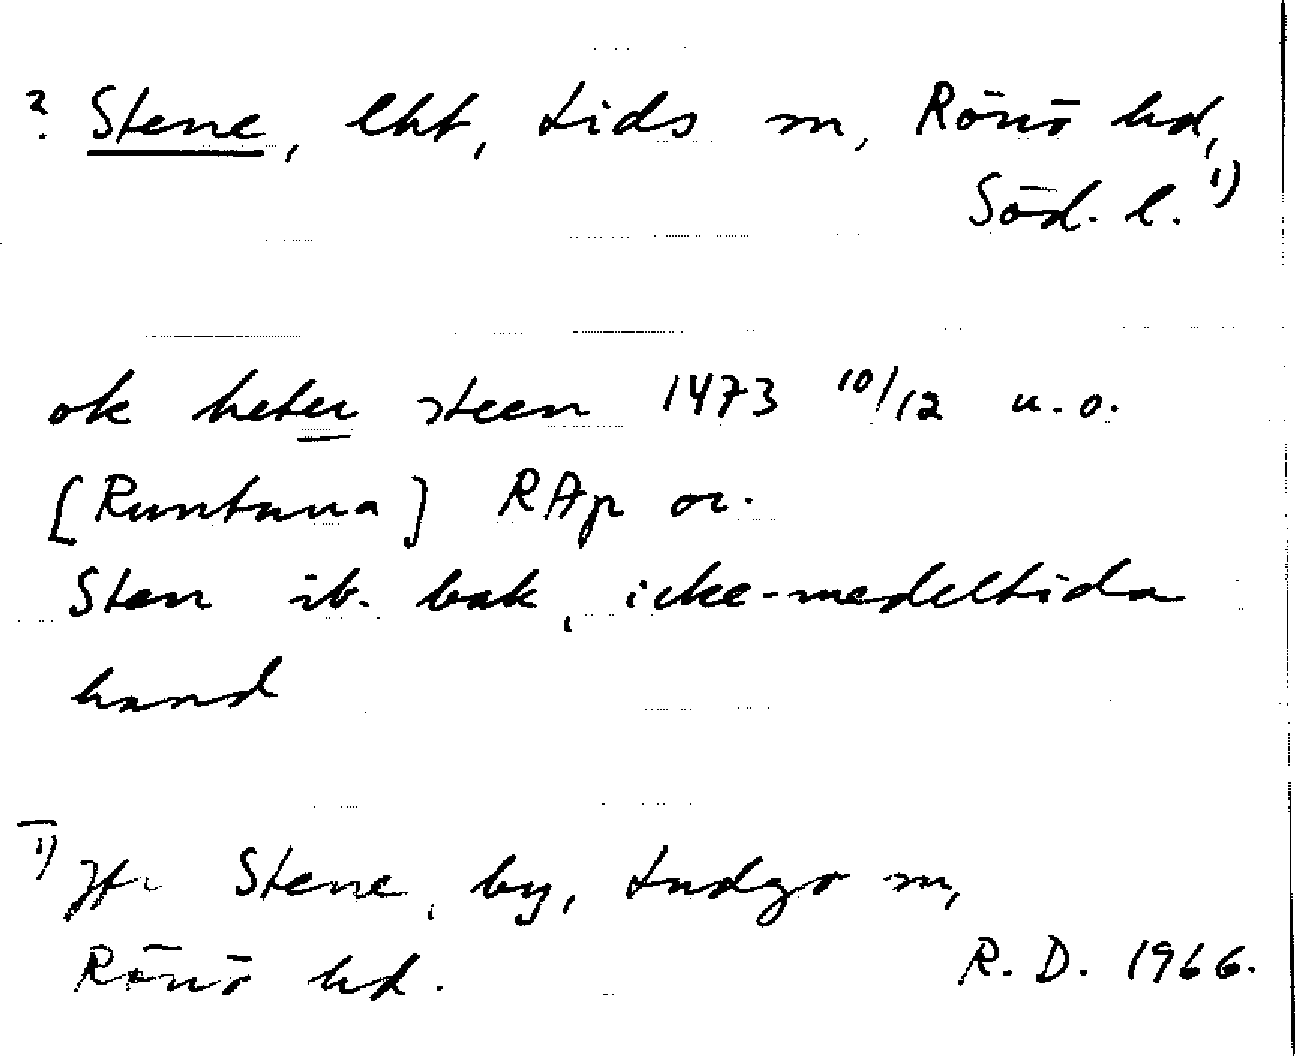 ? Stene, eht, Lids sn, Rönö hd,
Söd. l. 1)
ok heter steen 1473 10/12 u.o.
[Runtuna] RAp or.
Sten ib. bak, icke-medeltida
hand
1) Jfr Stene, by, Ludgo sn,
Rönö hd.
R. D. 1966.